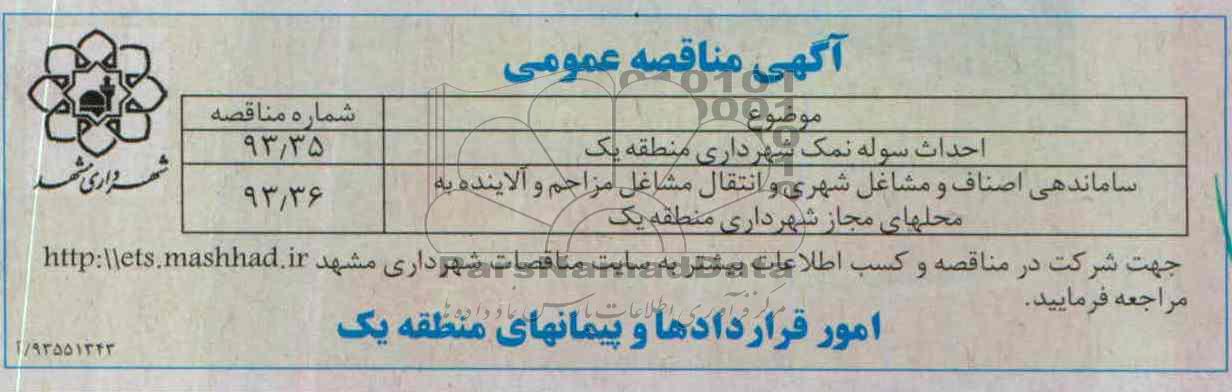 آگهی مناقصه عمومی
شهرداری مشهد
موضوع شماره مناقصه
احداث سوله نمک شهرداری منطقه یک ۹۳/۳۵
ساماندهی اصناف و مشاغل شهری و انتقال مشاغل مزاحم و آلاینده به
محلهای مجاز شهرداری منطقه یک ۹۳/۳۶
جهت شرکت در مناقصه و کسب اطلاعات بیشتر به سایت مناقصات شهرداری مشهد http:\\ets.mashhad.ir
مراجعه فرمایید.
امور قراردادها و پیمانهای منطقه یک
/۹۳۵۵۱۳۴۳
ParsNamadData